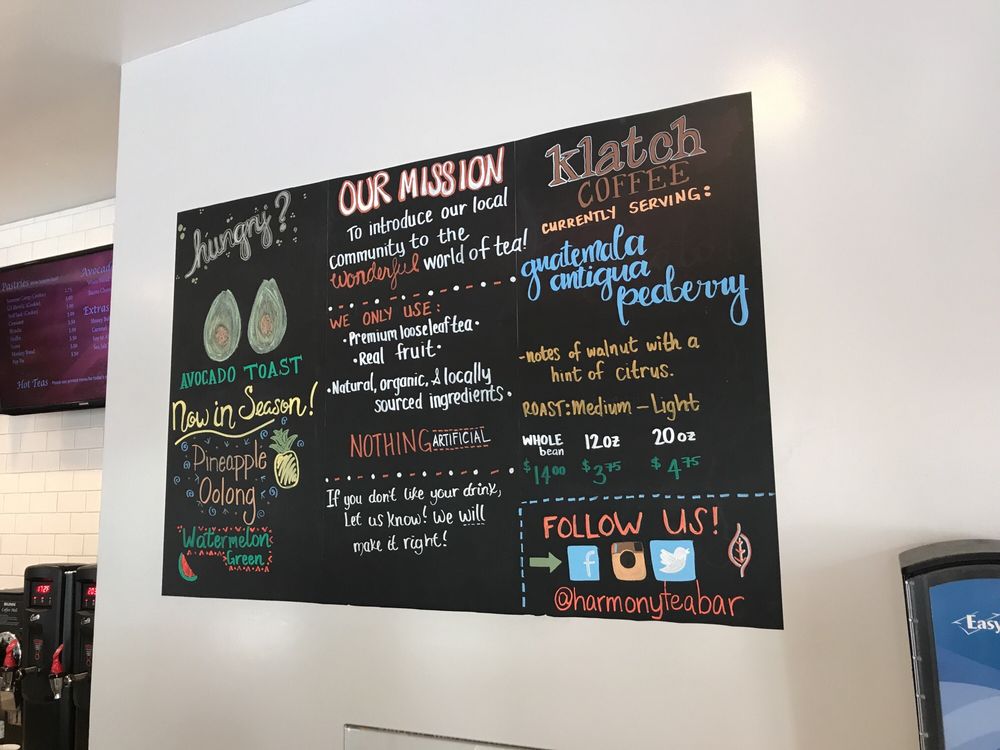 hungry?
AVOCADO TOAST
Now in Season!
Pineapple
Oolong
Watermelon
Green
OUR MISSION
To introduce our local
community to the
wonderful world of tea!
WE ONLY USE:
• Premium looseleaf tea •
• Real fruit •
• Natural, organic, & locally
sourced ingredients •
NOTHING ARTIFICIAL
If you don't like your drink,
Let us know! We will
make it right!
klatch
COFFEE
CURRENTLY SERVING:
guatemala
antigua
peaberry
-notes of walnut with a
hint of citrus.
ROAST: Medium - Light
WHOLE bean 12oz 20oz
$14.00 $3.75 $4.75
FOLLOW US!
f
@harmonyteabar
Pastries
Avocado
Extras
Hot Teas
BUNN
Easy